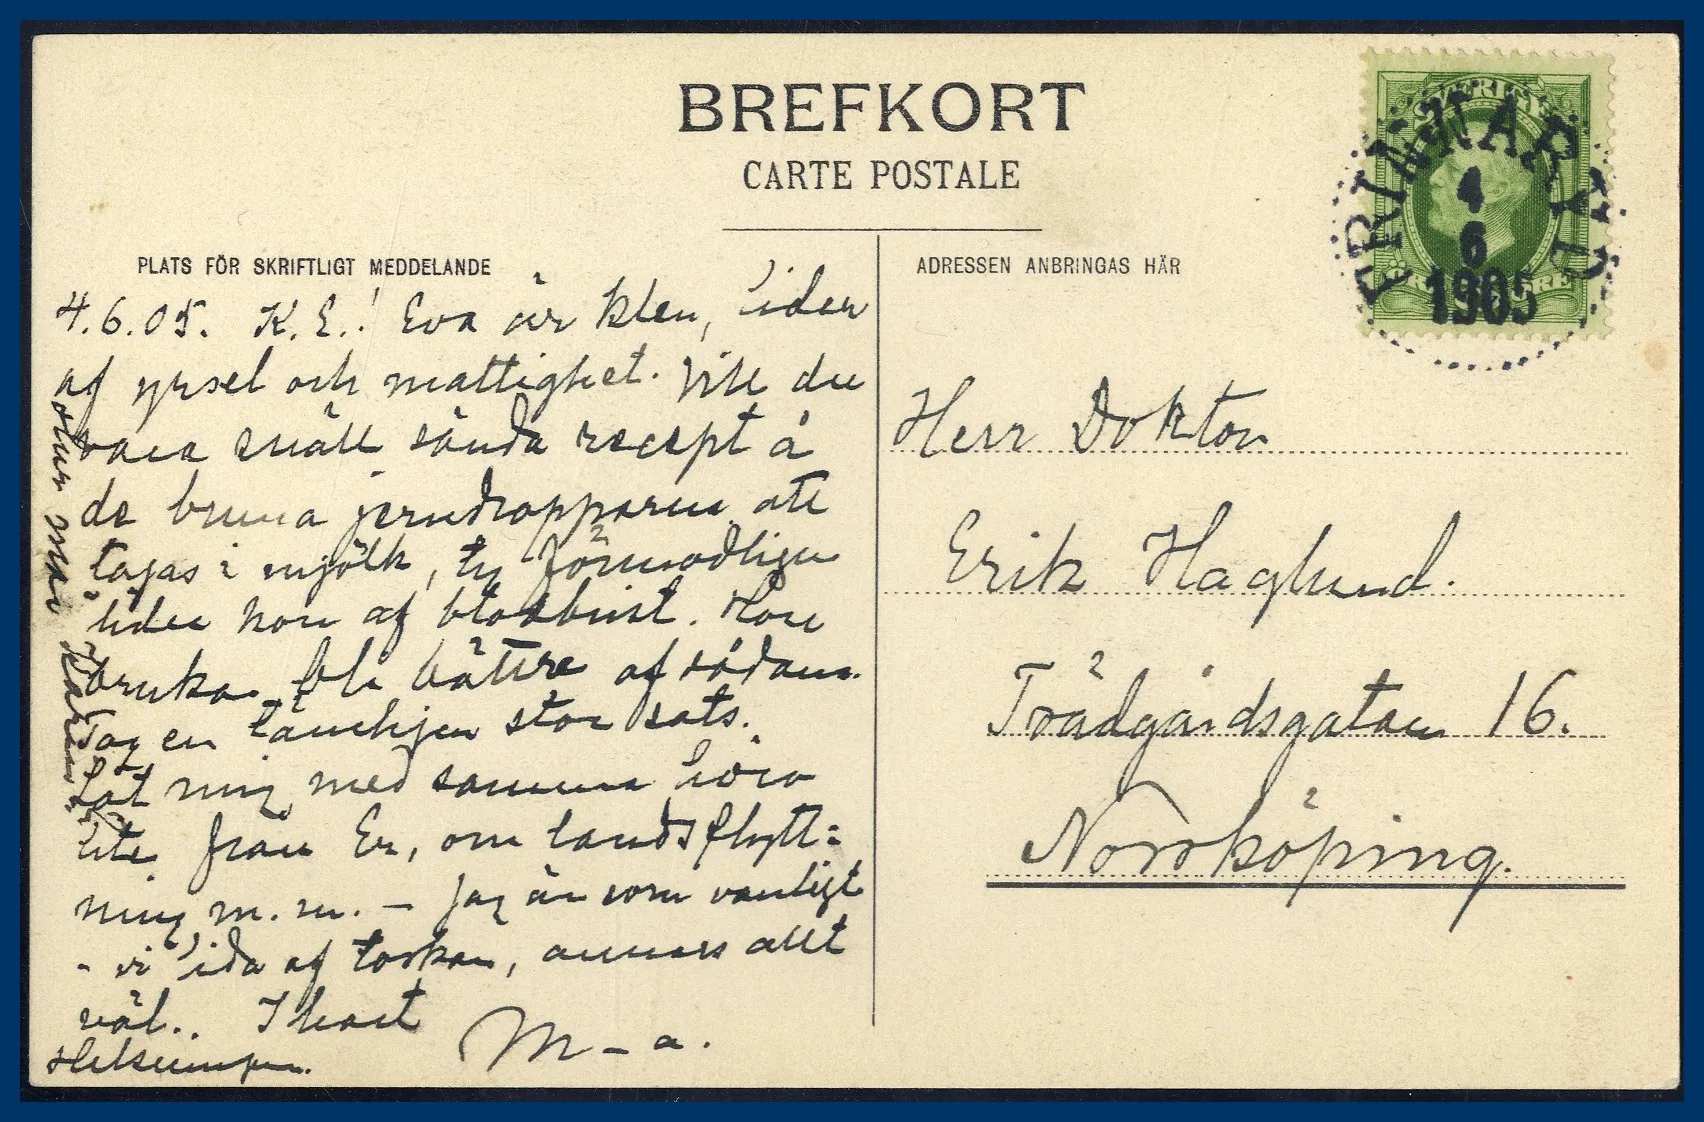 BREFKORT
CARTE POSTALE
PLATS FÖR SKRIFTLIGT MEDDELANDE
4.6.05. K.E.! Eva är klen, lider
af yrsel och mattighet. Vill du
vara snäll sända recept å
de bruna jerndropparne att
tagas i mjölk, ty förmodligen
lider hon af blodbrist. Hon
bruka bli bättre af sådan.
Tag en sats.
Låt mig med samma höra
lite från Er, om landsflytt=
ning m.m. – Jag är som vanligt
- vi lida af torkan, annars allt
väl.. I hast
Helsningar.
M – a.
ADRESSEN ANBRINGAS HÄR
Herr Doktor
Erik Haglund.
Trädgårdsgatan 16.
Norrköping.
SVERIGE
FRINNARYD
4
6
1905